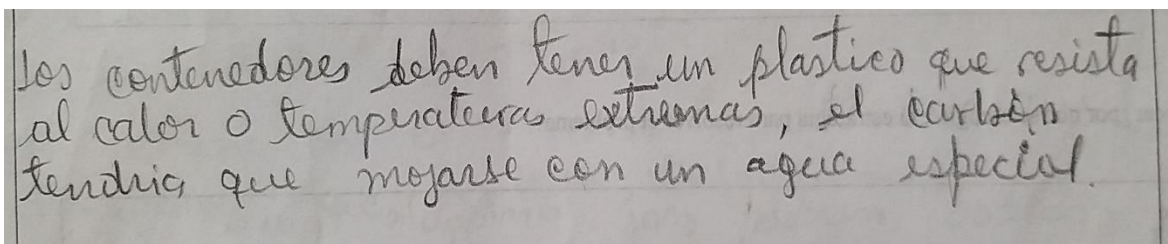 Los contenedores deben tener un plastico que resista
al calor o temperaturas extremas, el carbón
tendria que mojarse con un agua especial.